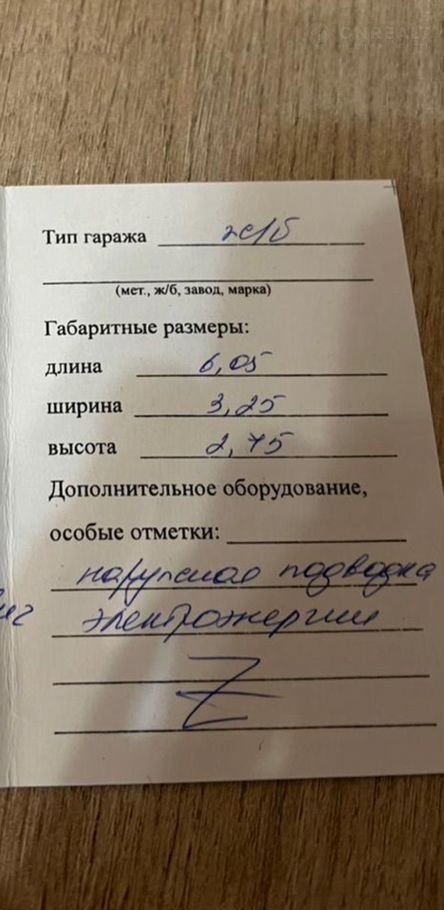 Тип гаража ж/б
(мет., ж/б, завод, марка)
Габаритные размеры:
длина 6,05
ширина 3,25
высота 2,75
Дополнительное оборудование,
особые отметки:
наружная подводка
электроэнергии